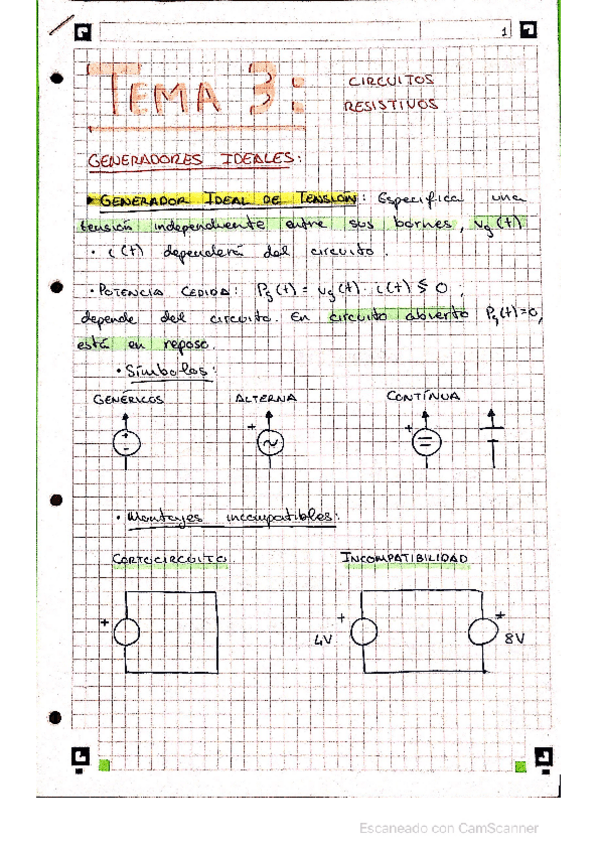 1
TEMA 3:
CIRCUITOS
RESISTIVOS
GENERADORES IDEALES:
GENERADOR IDEAL DE TENSIÓN: Especifica una
tensión independiente entre sus bornes, vg(t)
· i(t) dependerá del circuito.
· POTENCIA CEDIDA: Pg(t) = vg(t) · i(t) ≶ 0 ;
depende del circuito. En circuito abierto Pg(t)=0,
está en reposo.
· Símbolos:
GENÉRICOS ALTERNA CONTÍNUA
+ - + ~ + =
· Montajes incompatibles:
CORTOCIRCUITO INCOMPATIBILIDAD
+ + +
4V 8V
Escaneado con CamScanner